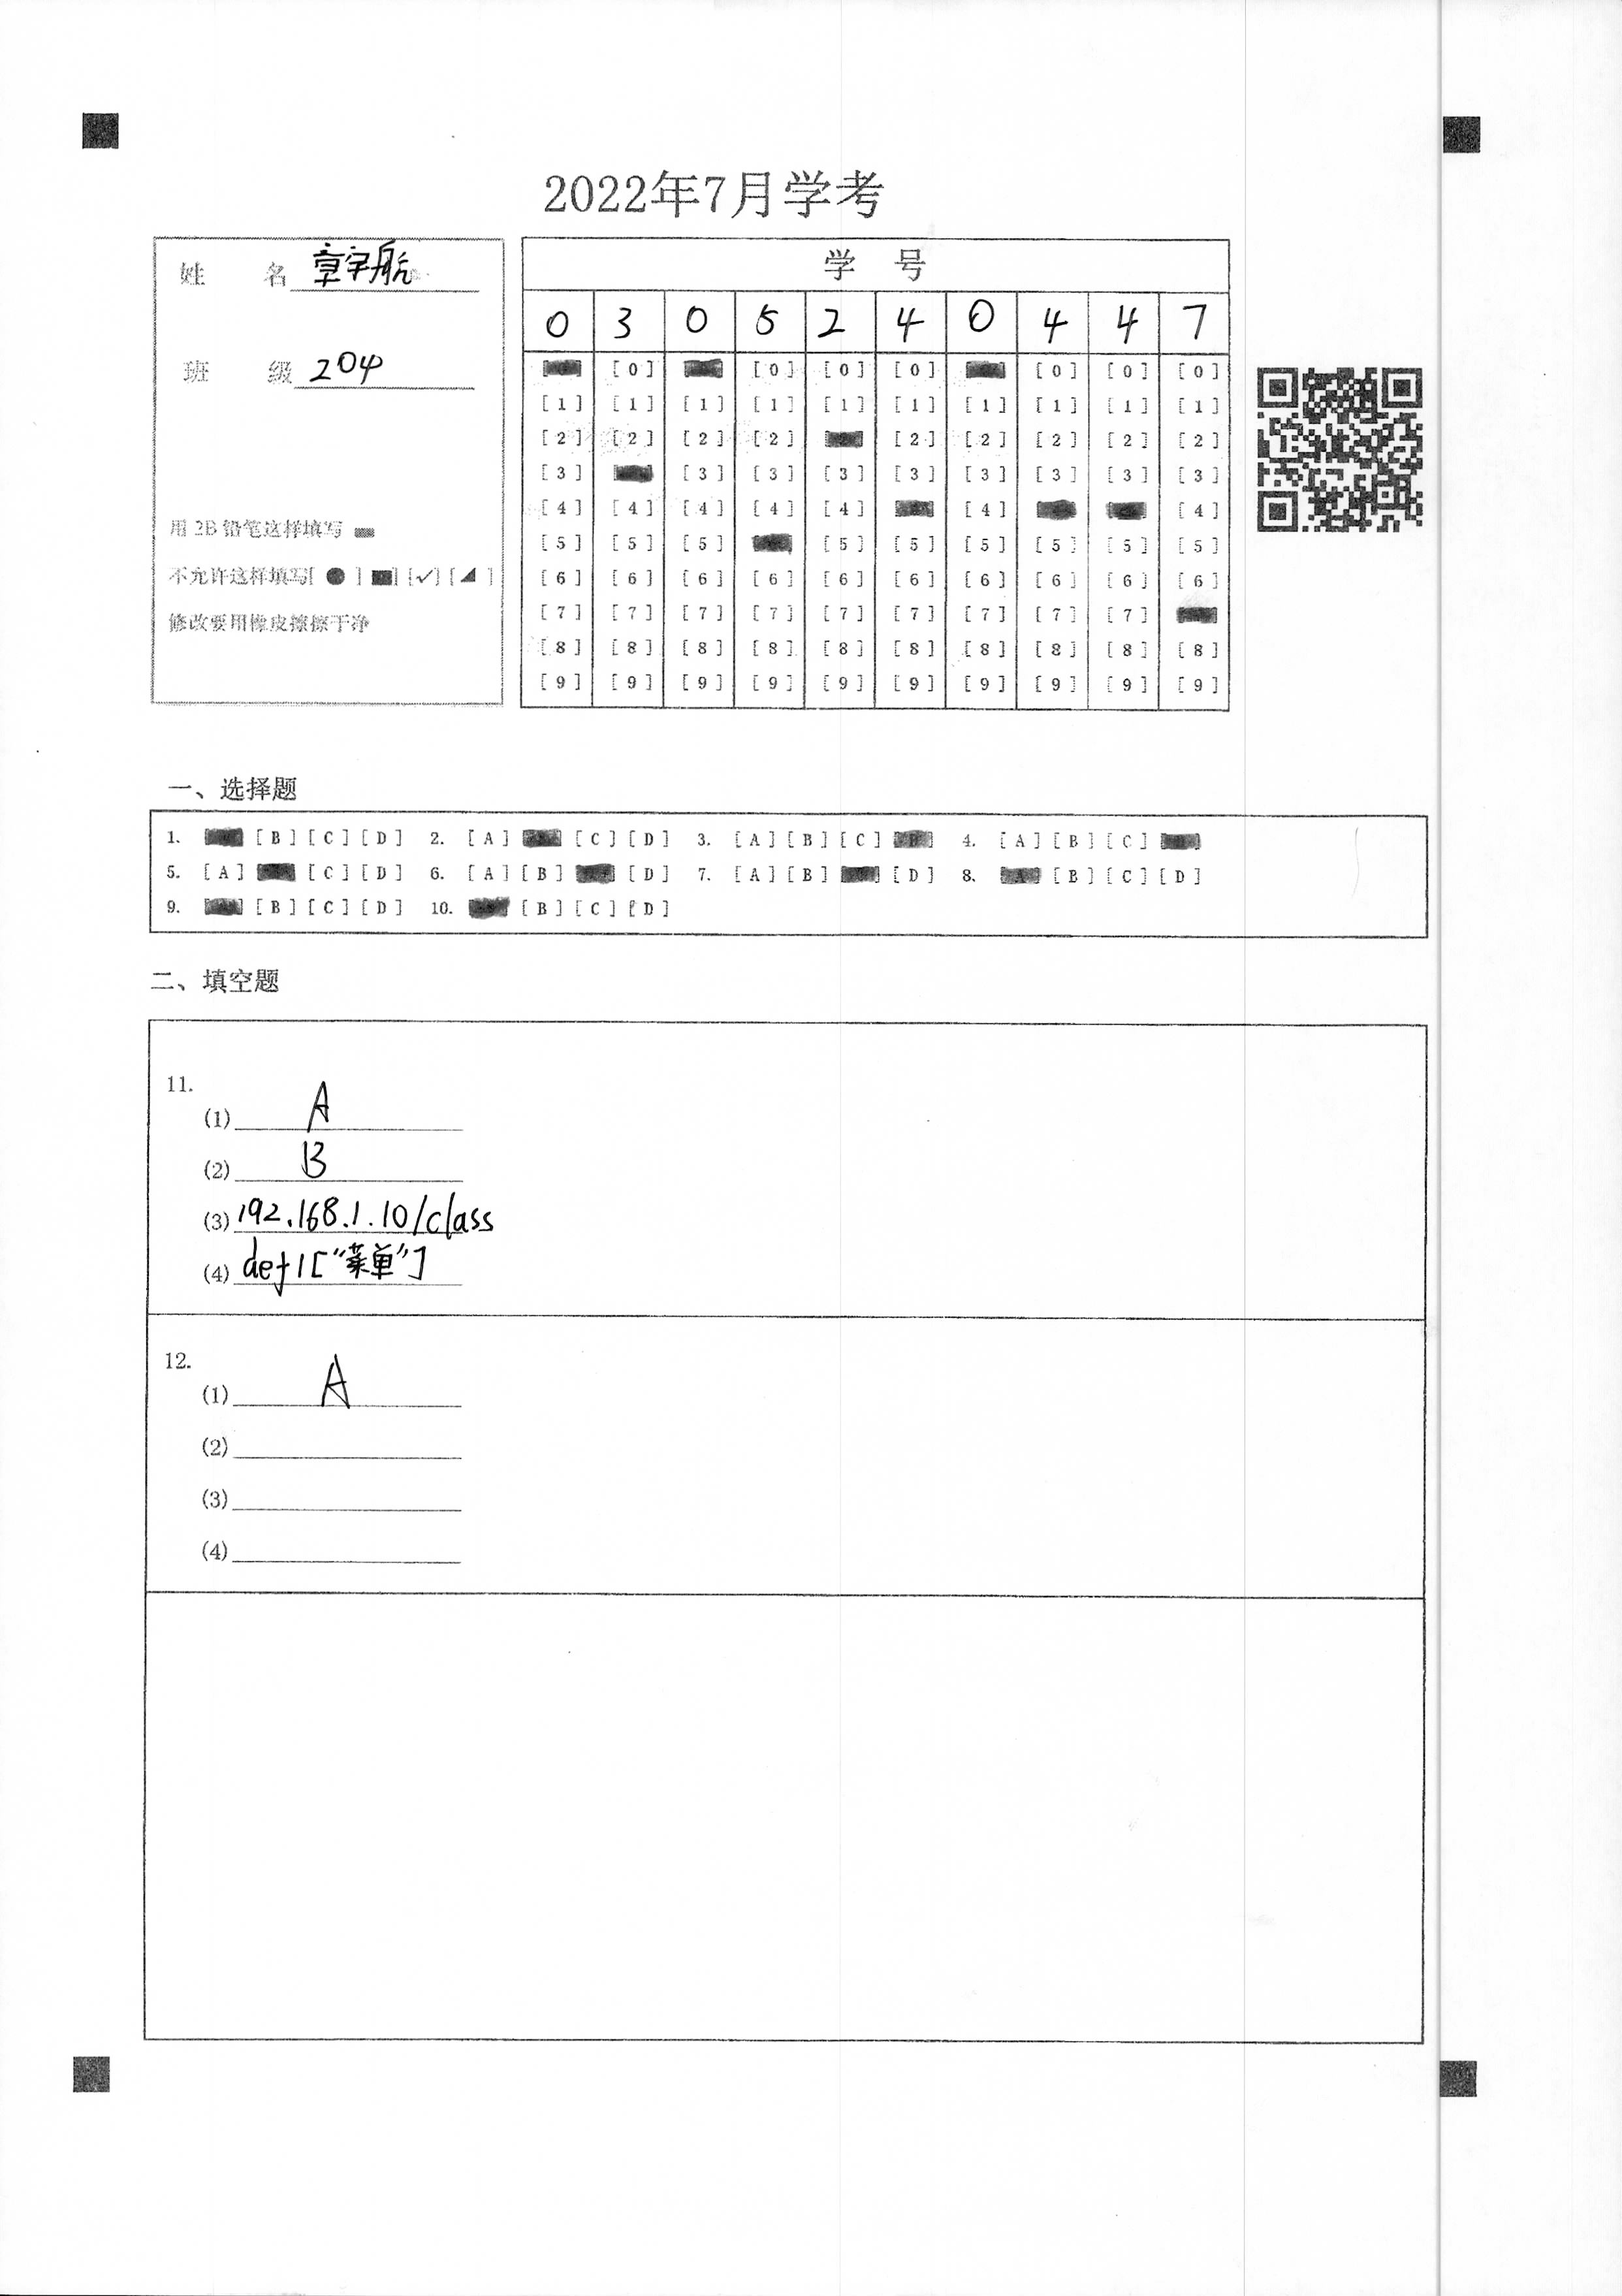 2022年7月学考
姓 名 章宇航
班 级 204
用 2B 铅笔这样填写
不允许这样填写[ ● ] [■] [✓] [◢ ]
修改要用橡皮擦擦干净
学 号
0 3 0 5 2 4 0 4 4 7
[0] [0] [0] [0] [0] [0] [0]
[1] [1] [1] [1] [1] [1] [1] [1] [1] [1]
[2] [2] [2] [2] [2] [2] [2] [2] [2]
[3] [3] [3] [3] [3] [3] [3] [3] [3]
[4] [4] [4] [4] [4] [4] [4]
[5] [5] [5] [5] [5] [5] [5] [5] [5]
[6] [6] [6] [6] [6] [6] [6] [6] [6] [6]
[7] [7] [7] [7] [7] [7] [7] [7] [7]
[8] [8] [8] [8] [8] [8] [8] [8] [8] [8]
[9] [9] [9] [9] [9] [9] [9] [9] [9] [9]
一、选择题
1. [B] [C] [D] 2. [A] [C] [D] 3. [A] [B] [C] 4. [A] [B] [C]
5. [A] [C] [D] 6. [A] [B] [D] 7. [A] [B] [D] 8. [B] [C] [D]
9. [B] [C] [D] 10. [B] [C] [D]
二、填空题
11.
(1) A
(2) B
(3) 192.168.1.10/class
(4) def1["菜单"]
12.
(1) A
(2)
(3)
(4)